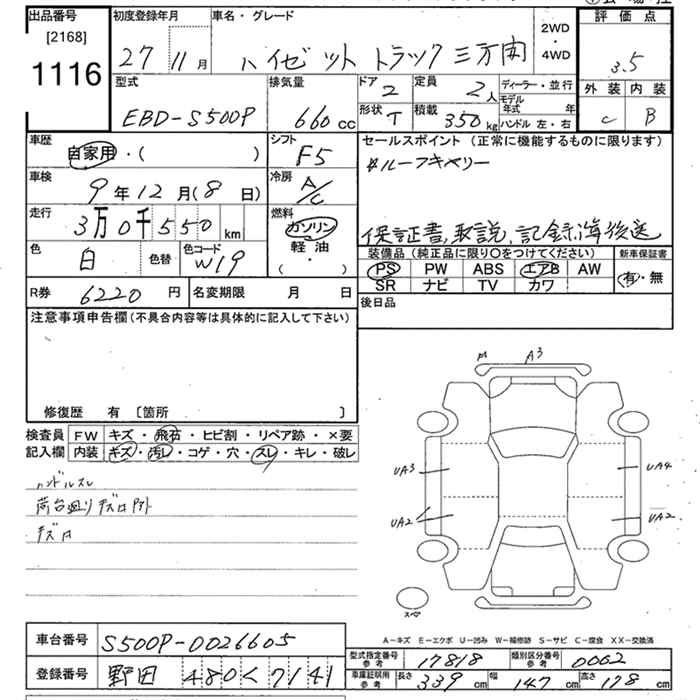 出品番号
[2168]
1116
初度登録年月
27 11月
車名・グレード
ハイゼット トラック 三方開
2WD
・
4WD
評価点
3.5
外装 内装
C B
型式
EBD-S500P
排気量
660 cc
ドア 2
形状 T
定員 2人
積載 350 kg
ディーラー・並行
モデル年式 年
ハンドル 左・右
車歴
自家用・( )
シフト
F5
車検
9年12月(8日)
冷房
A/C
走行
3万0千550 km
燃料
ガソリン
軽油
( )
色
白
色替
色コード
W19
セールスポイント (正常に機能するものに限ります)
#ルーフキャリー
保証書、取説、記録簿後送
装備品 (純正品に限り〇をつけてください)
PS PW ABS エアB AW
SR ナビ TV カワ
新車保証書
有・無
R券 6220円
名変期限 月 日
後日品
注意事項申告欄 (不具合内容等は具体的に記入して下さい)
修復歴 有 [箇所 ]
検査員
記入欄
FW キズ・飛石・ヒビ割・リペア跡・×要
内装 キズ・汚レ・コゲ・穴・スレ・キレ・破レ
ハンドルスレ
荷台廻りキズ
キズ
A3
UA3
UA4
UA2
UA2
スペア
A-キズ E-エクボ U-凹み W-補修跡 S-サビ C-腐食 XX-交換済
車台番号 S500P-0026605
登録番号 野田 480 く 7141
型式指定番号 参考 17818
類別区分番号 参考 0062
車庫証明用 参考
長さ 339 cm 幅 147 cm 高さ 178 cm